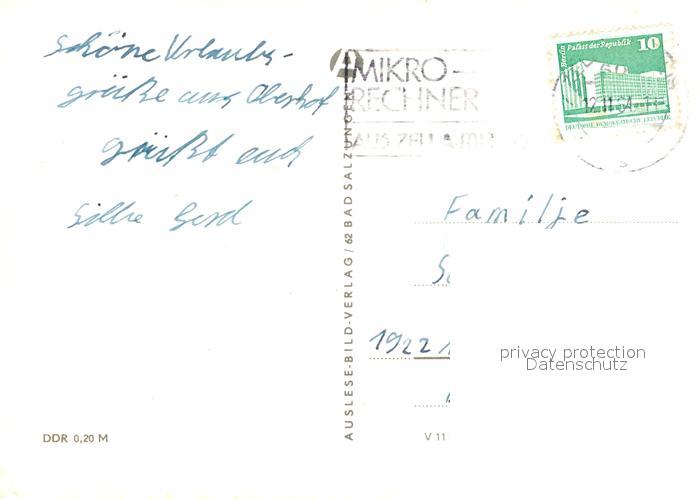 schöne Urlaubs-
grüße aus Oberhof
grüßt euch
Silke Gerd
MIKRO-
RECHNER
AUS ZELLA-MEHLIS
Berlin Palast der Republik 10
DEUTSCHE DEMOKRATISCHE REPUBLIK
12.11.84
AUSLESE-BILD-VERLAG/62 BAD SALZUNGEN
Familie
S
1922
privacy protection
Datenschutz
DDR 0,20 M
V 11